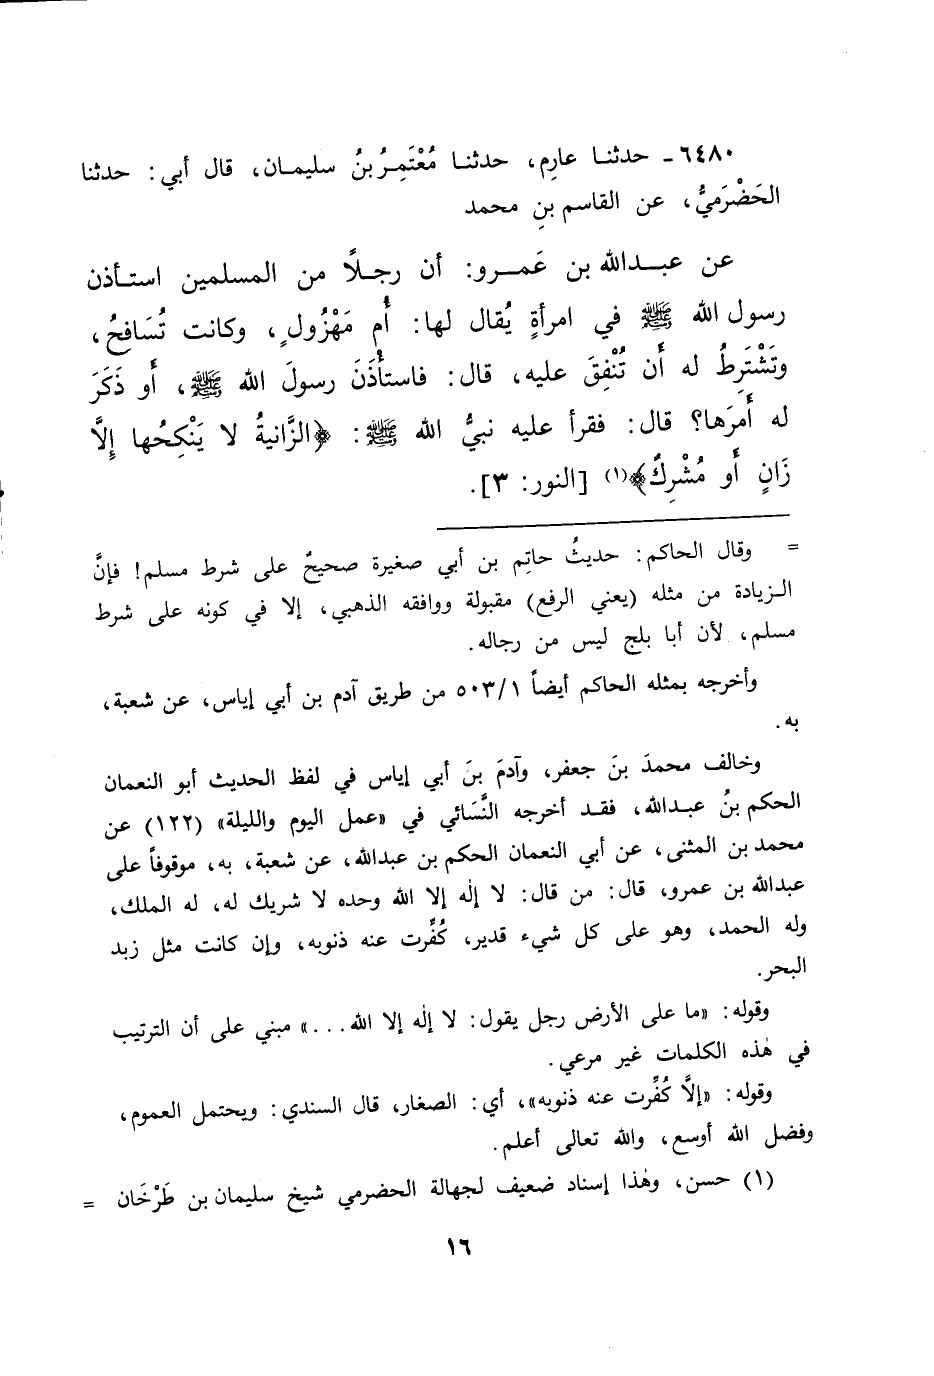 ٦٤٨٠ـ حدثنـا عارِم، حدثنـا مُعْتَمِـرُ بنُ سليمـان، قال أبي: حدثنا
الحَضْرَميُّ، عن القاسم بنِ محمد
عن عبـدالله بن عَمـرو: أن رجـلاً من المسلمين استـأذن
رسول الله ﷺ في امرأةٍ يُقال لها: أُم مَهْزُولٍ، وكانت تُسَافحُ،
وتَشْتَرِطُ له أَن تُنْفِقَ عليه، قال: فاستأْذَنَ رسولَ الله ﷺ، أَو ذَكَرَ
له أَمرَها؟ قال: فقرأ عليه نبيُّ الله ﷺ: ﴿الزَّانيةُ لا يَنْكِحُها إِلَّا
زَانٍ أَو مُشْرِكٌ﴾(١) [النور: ٣].
= وقال الحاكم: حديثُ حاتِم بن أبي صغيرة صحيحٌ على شرط مسلم! فإنَّ
الـزيادة من مثله (يعني الرفع) مقبولة ووافقه الذهبي، إلا في كونه على شرط
مسلم، لأن أبا بلج ليس من رجاله.
وأخرجه بمثله الحاكم أيضاً ٥٠٣/١ من طريق آدم بن أبي إياس، عن شعبة،
به.
وخالف محمدَ بنَ جعفر، وآدمَ بنَ أبي إياس في لفظ الحديث أبو النعمان
الحكم بنُ عبدالله، فقـد أخرجه النَّسَائي في «عمل اليوم والليلة» (١٢٢) عن
محمد بن المثنى، عن أبي النعمان الحكم بن عبدالله، عن شعبة، به، موقوفاً على
عبدالله بن عمرو، قال: من قال: لا إلٰه إلا الله وحده لا شريك له، له الملك،
وله الحمد، وهو على كل شيء قدير، كُفِّرت عنه ذنوبه، وإن كانت مثل زبد
البحر.
وقوله: «ما على الأرض رجل يقول: لا إلٰه إلا الله...» مبني على أن الترتيب
في هٰذه الكلمات غير مرعي.
وقوله: «إلَّا كُفِّرت عنه ذنوبه»، أي: الصغار، قال السندي: ويحتمل العموم،
وفضل الله أوسع، والله تعالى أعلم.
(١) حسن، وهٰذا إسناد ضعيف لجهالة الحضرمي شيخ سليمان بن طَرْخَان =
١٦